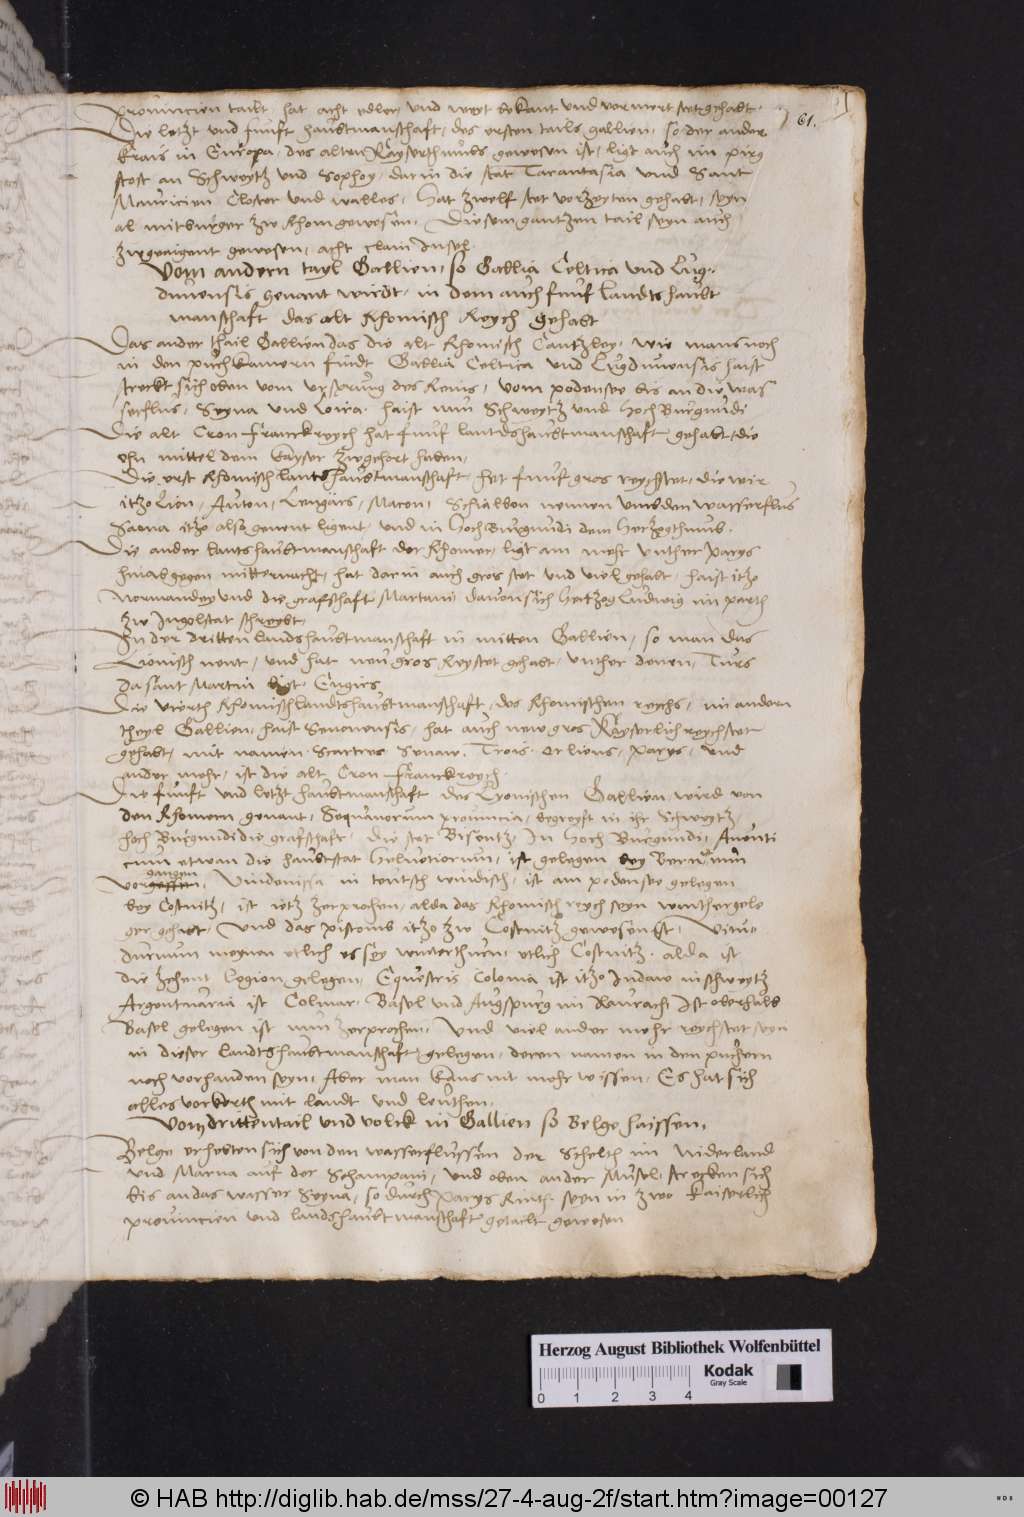 61.
prouincien tailt hat acht edler und weyt bekant und vermert stet gehabt.
Die letzt und funft haubtmanschaft, des ersten tails gallien, so der ander
krais in Europa, des alten Kayserthumbs gewesen ist, ligt auch im pirg
stost an Schweytz und Sophoy, darin die stat Tarantasia und Sant
Mauricien Closter und walles, Hat zwelf stet vorzeyten gehabt, seyn
al mitburger zw Rhom gewesen, Diesem gantzen tail seyn auch
zugeaigent gewesen, acht clain Insel.
Vom andern tayl Gallien, so Gallia Celtica und Lug-
dunensis genant wirdt, in dem auch funf landts haubt
manschaft das alt Rhomisch Reych gehabt
Das ander thail Gallien das die alt Rhomisch Cantzley, wie mans noch
in den puchkamern findt Gallia Celtica und Lugdunensis haist
streckt sich oben vom ursprung des Reins, vom podensee bis an die was
serflus, Seyna und Loira. haist nun Schweytz und Hoch Burgundi
Die alt Cron Franckreych hat funf lantdshaubtmanschaft gehabt, die
ohn mittel dem kayser zugehort haben,
Die erst Rhomisch lantdshaubtmanschaft, het funf gros reychstet, die wir
itzo Lion, Auton, Lengars, Macon, Schialbon nennen umb den wasserflus
Saona itzo also genent ligent, und in Hoch Burgundi dem Hertzogthumb.
Die ander lantshaubtmanschaft der Rhomer, ligt am mehr unther Parys
hinab gegen mitternacht, hat darin auch gros stet und viel gehabt, haist itzo
Normandey und die grafschaft Martani davon sich Hertzog Ludwig im parth
zw Ingolstat schreybt,
In der dritten landshaubtmanschaft in mitten Gallien, so man das
Lionisch nent, und hat neun gros Reystet gehabt, unther denen, Turs
da sant Martin ligt, Engirs
Die vierth Rhomisch landtshaubtmanschaft, des Rhomischen reychs, im andern
theyl Gallien, haist Senonensis, hat auch new gros Kayserlich reychstet
gehabt, mit namen Scartres Senaw, Trois, Orliens, Parys, und
ander mehr, ist die alt Cron Franckreych.
Die funft und letzt haubtmanschaft des Lyonischen Gallien, wird von
den Rhomern genant, Sequanorum prouincia, begreyft in ihr Schweytz,
hoch Burgundi die grafschaft, Die stat Bisentz, In hoch Burgundi, Auenti
cum etwan die haubtstat Heluetiorum, ist gelegen bey Bern, nun
gangen
vergessen, Vindonissa in teutsch windisch, ist am podensee gelegen
bey Costnitz, ist ietz zerprochen, alda das Rhomisch reych seyn wintherge
ger gehabt, Und das pistomb itzo zw Costnitz gewesen ist, Vitu-
durum meynen etlich es sey wintterthurn, etlich Costnitz. alda ist
die Zehent Legion gelegen, Equestris Colonia ist itzo Indaw in schweytz
Argentuaria ist Colmar. Basel und Augspurg im Raurach, Ist oberhalb
Basel gelegen ist nun zerprochen, Und viel ander mehr reychstet seyn
in dieser landtshaubtmanschaft gelegen, deren namen in den puchern
noch vorhanden seyn, Aber man kans nit mehr wissen, Es hat sich
alles verkerth mit landt und leuthen.
Vom dritten tail und volck in Gallien so Belge haissen,
Belge erhebten sich von den wasserflussen der Schelth im Niderland
und Marna auf der Schampani, und oben an der Musel, strecken sich
bis an das wasser Seyna, so durch Parys Rinth. seyn in zwo kaiserlich
prouincien und landshaubtmanschaft getailt gewesen
Herzog August Bibliothek Wolfenbüttel
Kodak
Gray Scale
0 1 2 3 4
© HAB http://diglib.hab.de/mss/27-4-aug-2f/start.htm?image=00127